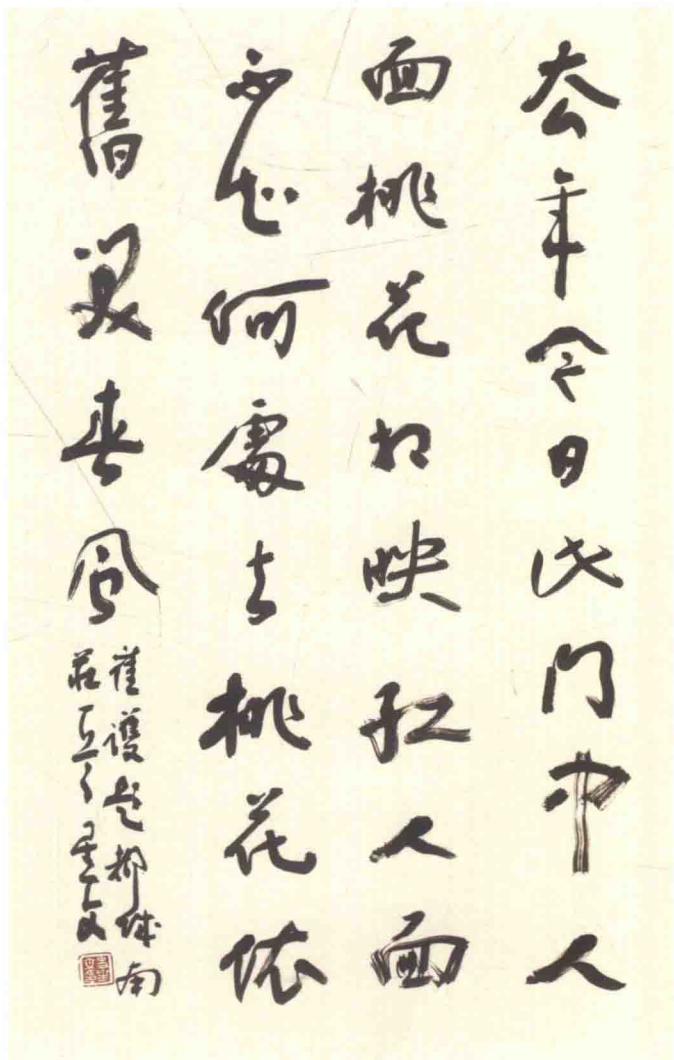 去年今日此門中人
面桃花相映紅人面
不知何處去桃花依
舊笑春風
崔護題都城南
莊